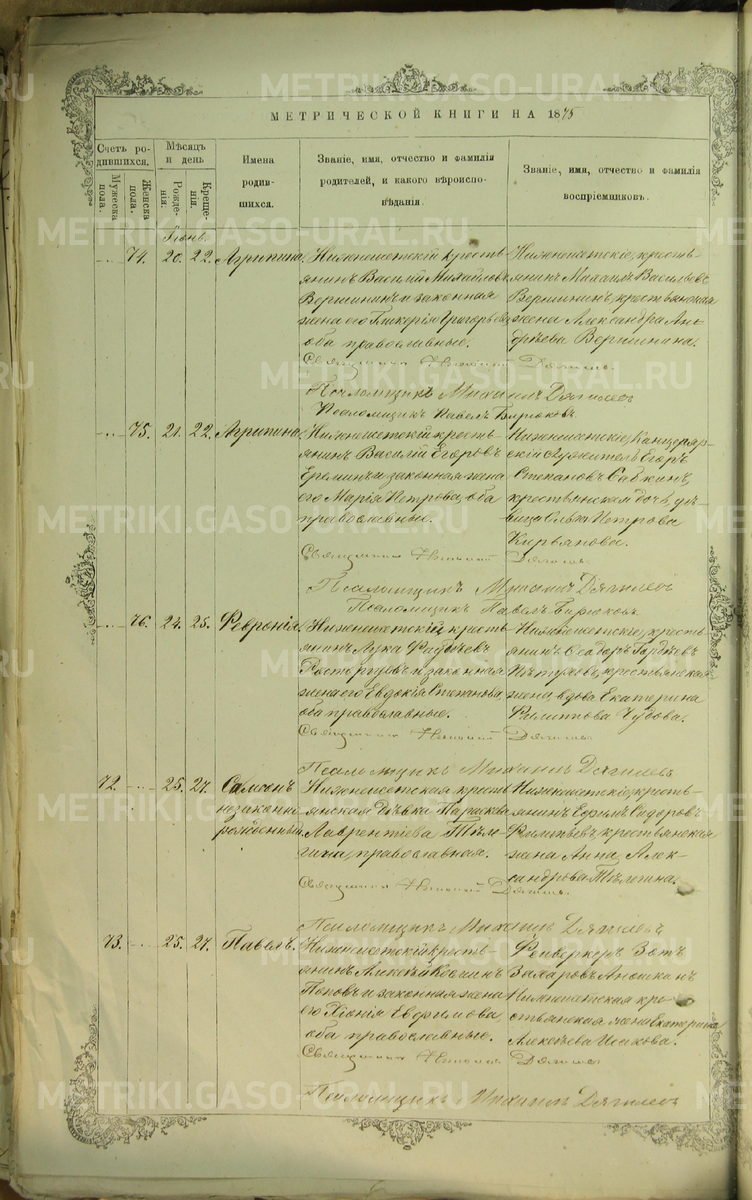 МЕТРИЧЕСКОЙ КНИГИ НА 1875
Счетъ родившихся.
Мужеска пола.
Женска пола.
Мѣсяцъ и день
Рожденія.
Крещенія.
Имена родившихся.
Званіе, имя, отчество и фамилія родителей, и какого вѣроисповѣданія.
Званіе, имя, отчество и фамилія воспріемниковъ.
Іюнь.
74. 20. 22. Агрипина.
Нижнеисетскій кресть-
янинъ Василій Михайловъ
Вершининъ и законная
жена его Гликерія Григорьева
оба православные.
Нижнеисетскіе, кресть-
янинъ Михаилъ Васильевъ
Вершининъ, крестьянская
жена Александра Ан-
дрѣева Вершинина.
Священникъ
Псаломщикъ Михаилъ Дягилевъ
Псаломщикъ Павелъ Бирюковъ.
75. 21. 22. Агрипина.
Нижнеисетскій кресть-
янинъ Василій Егоровъ
Ереминъ и законная жена
его Марія Петрова, оба
православные.
Нижнеисетскіе, Канцеляр-
скій служитель Егоръ
Степановъ Бабкинъ,
крестьянская дочь, дѣ-
вица Ольга Петрова
Кирьянова.
Священникъ
Псаломщикъ Михаилъ Дягилевъ
Псаломщикъ Павелъ Бирюковъ.
76. 24. 25. Февронія.
Нижнеисетскій кресть-
янинъ Лука Фадѣевъ
Расторгуевъ и законная
жена его Евдокія Степанова
оба православные.
Нижнеисетскіе, кресть-
янинъ Ѳеодоръ Гордѣевъ
крестьянская
жена, вдова Екатерина
Филиппова Чудова.
Священникъ
Псаломщикъ Михаилъ Дягилевъ
72. 25. 27. Самсонъ
незаконно-
рожденный
Нижнеисетская кресть-
янская дѣвка Параскева
Лаврентіева
православная.
Нижнеисетскіе, кресть-
янинъ Ефимъ Сидоровъ
Филипьевъ, крестьянская
жена Анна Алек-
сандрова
Священникъ
Псаломщикъ Михаилъ Дягилевъ
73. 25. 27. Павелъ.
Нижнеисетскій кресть-
янинъ Алексѣй
Поповъ и законная жена
его Хіонія Евфимова,
оба православные.
Фейверкеръ Зотъ
Захаровъ
Нижнеисетская кре-
стьянская жена Екатерина
Алексѣева Исакова.
Священникъ
Псаломщикъ Михаилъ Дягилевъ
METRIKI.GASO-URAL.RU